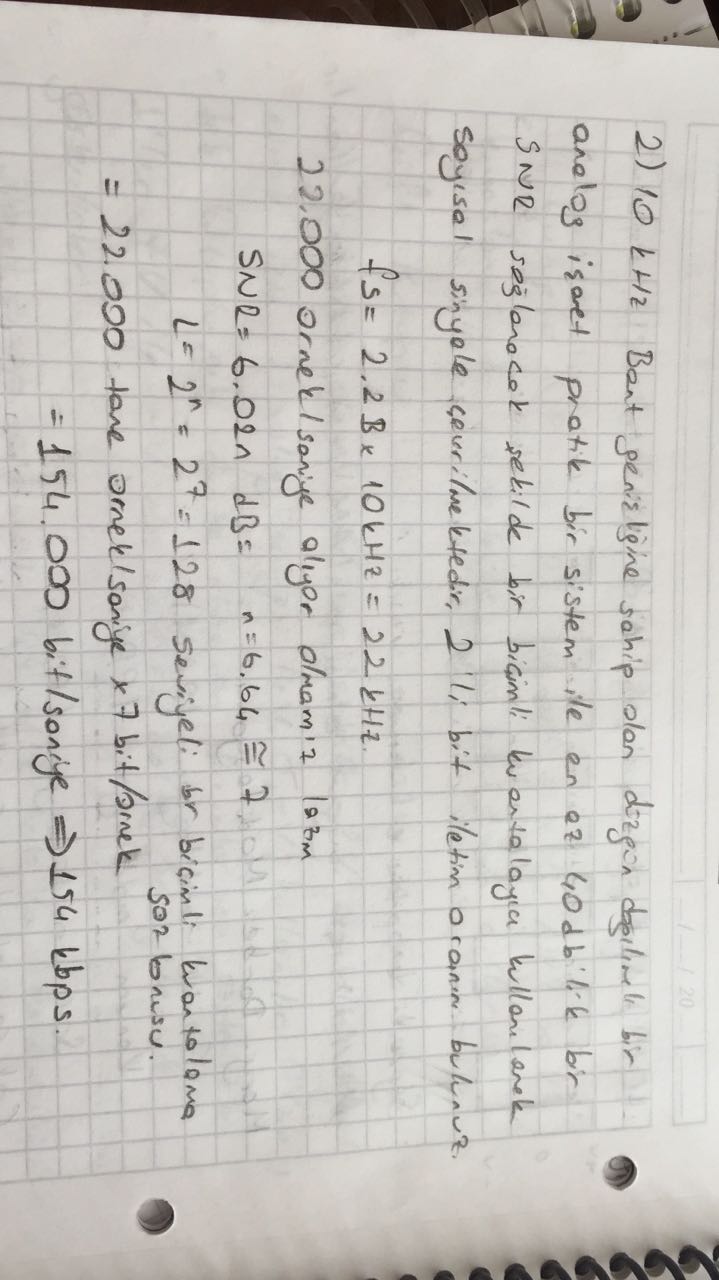 2) 10 kHz Bant genişliğine sahip olan düzgün dağılımlı bir
analog işaret pratik bir sistem ile en az 40 dbilik bir
SNR sağlanacak şekilde bir biçimli kuantalayıcı kullanılarak
sayısal sinyale çevrilmektedir. 2'li bit iletim oranını bulunuz.
fs = 2.2B x 10kHz = 22 kHz.
22.000 örnek/saniye alıyor olmamız lazım
SNR = 6.02n dB = n = 6.64 ≅ 7
L = 2ⁿ = 2⁷ = 128 seviyeli bir biçimli kuantalama
söz konusu.
= 22.000 tane örnek/saniye x 7 bit/örnek
= 154.000 bit/saniye ⇒ 154 kbps.